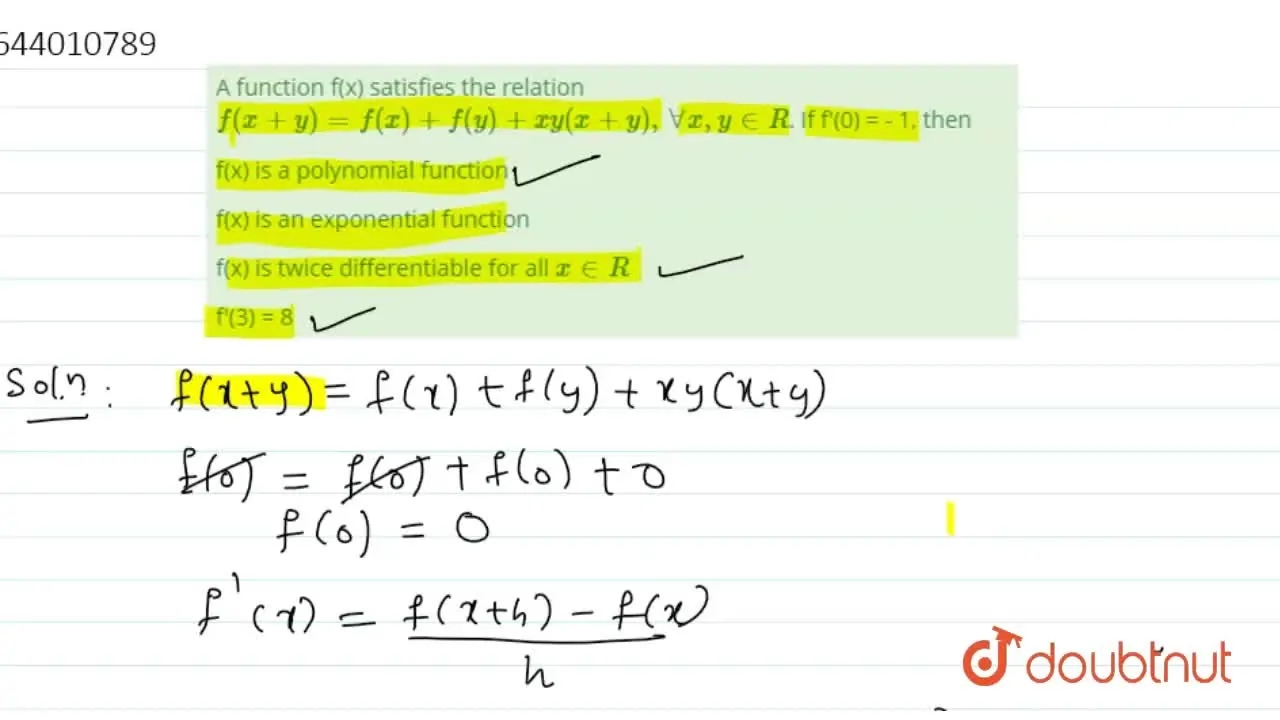 644010789
A function f(x) satisfies the relation
f(x + y) = f(x) + f(y) + xy(x + y), ∀x, y ∈ R. If f'(0) = - 1, then
f(x) is a polynomial function
f(x) is an exponential function
f(x) is twice differentiable for all x ∈ R
f'(3) = 8
Sol.n : f(x+y) = f(x) + f(y) + xy(x+y)
f(0) = f(0) + f(0) + 0
f(0) = 0
f'(x) = f(x+h) - f(x)
h
doubtnut